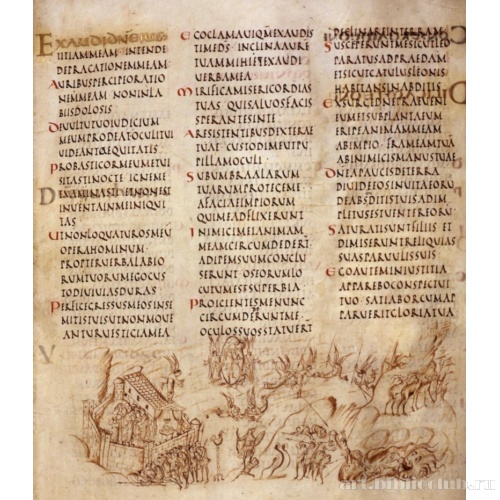 EXAUDIDNEIUS
TITIAMMEAM INTENDE
DEPRECATIONEMMEAM
AURIBUSPERCIPEORATIO
NEMMEAM NONINLA
BIISDOLOSIS
DEUULTUTUOIUDICIUM
MEUMPRODEATOCULITUI
UIDEANTAEQUITATIS
PROBASTICORMEUMETUI
SITASTINOCTE IGNEME
EXAMINASTI ETNONEST
INUENTAINMEINIQUI
TAS
UTNONLOQUATUROSMEU
OPERAHOMINUM
PROPTERUERBALABIO
RUMTUORUMEGOCUS
TODIUIUIASDURAS
PERFICEGRESSUSMEOSINSE
MITISTUISUTNONMOUE
ANTURUESTIGIAMEA
EGOCLAMAUIQMEXAUDIS
TIMEDS INCLINAAURE
TUAMMIHIETEXAUDI
UERBAMEA
MIRIFICAMISERICORDIAS
TUAS QUISALUOSFACIS
SPERANTESINTE
ARESISTENTIBUSDEXTERAE
TUAE CUSTODIMEUTPU
PILLAMOCULI
SUBUMBRAALARUM
TUARUMPROTEGEME
AFACIAEIMPIORUM
QUIMEADFLIXERUNT
INIMICIMEIANIMAM
MEAMCIRCUMDEDERT
ADIPEMSUUMCONCLU
SERUNT OSEORUMLO
CUTUMESTSUPERBIA
PROICIENTESMENUNC
CIRCUMDERUNTME
OCULOSSUOSSTATUERT
DECLINAREINTERRAM
SUSCEPERUNTMESICUTLEO
PARATUSADPRAEDAM
ETSICUTCATULUSLEONIS
HABITANSINABDITIS
EXURGEDNEPRAEUENI
EUMETSUBPLANTAEUM
ERIPEANIMAMMEAM
ABIMPIO FRAMEAMTUA
ABINIMICISMANUSTUAE
DNEAPAUCISDETERRA
DIUIDEEOSINUITAEORU
DEABSDITISTUISADIM
PLETUSESTUENTEREORU
SATURATISUNTFILIIS ET
DIMISERUNTRELIQUIAS
SUASPARUULISSUIS
EGOAUTEMINIUSTITIA
APPAREBOCONSPECTUI
TUO SATIABORCUMAP
PARUERITGLORIATUA
art.biblioclub.ru